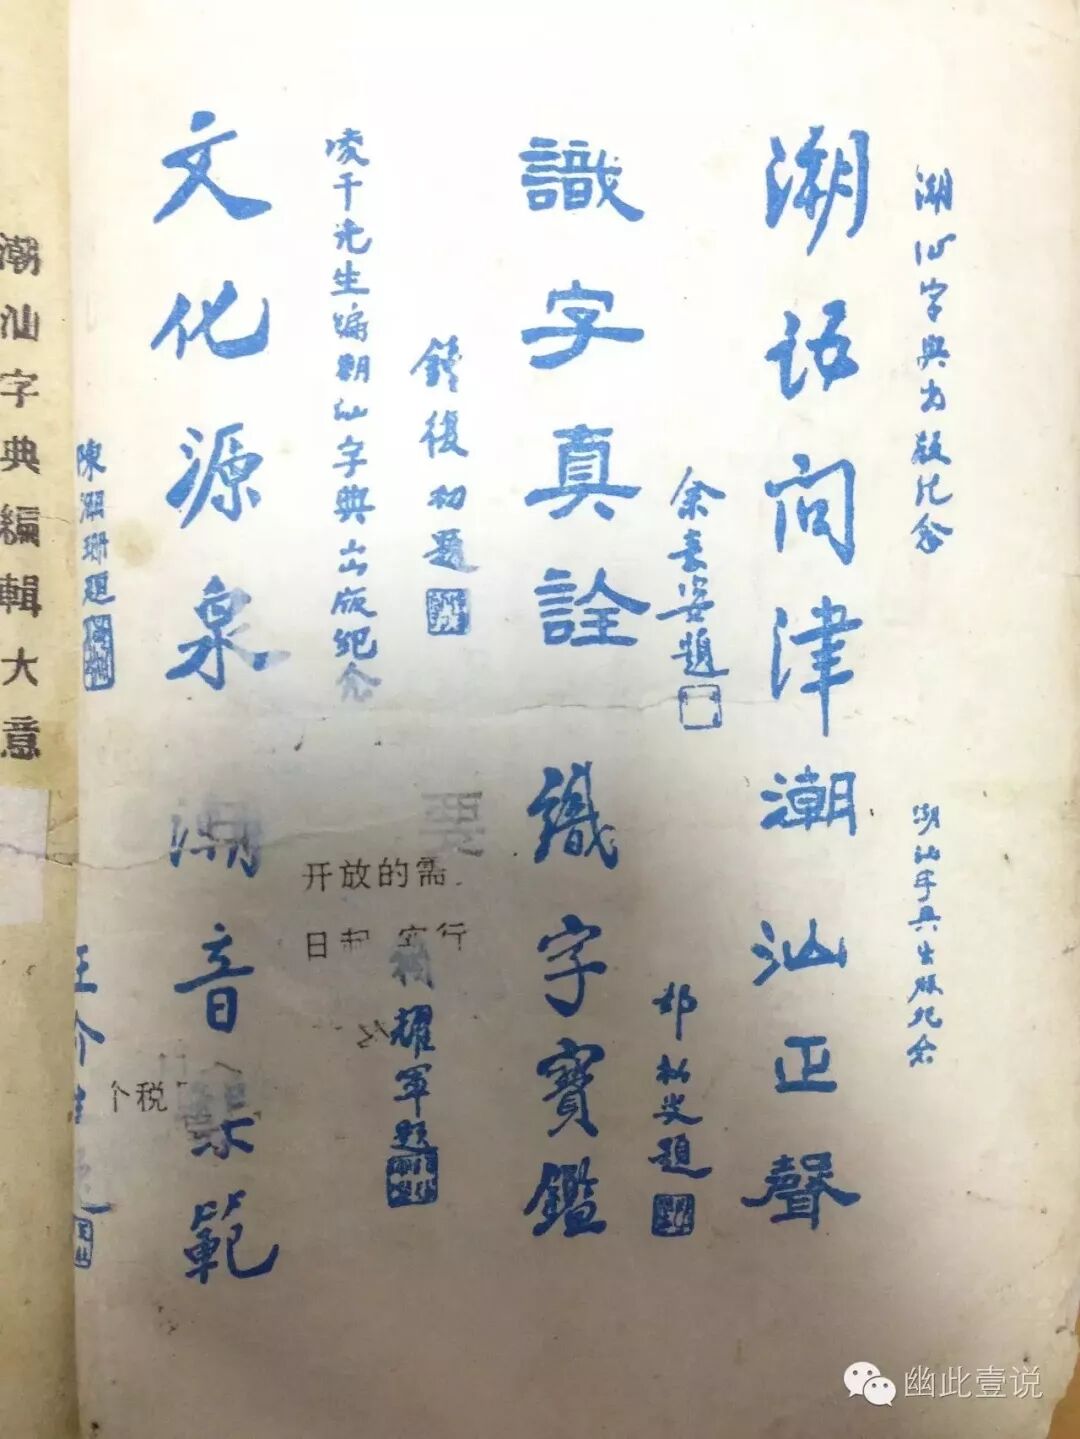 潮汕字典出版纪念
潮语问津
余素姿題
識字真詮
鍾復初題
凌千先生编潮汕字典出版纪念
文化源泉
陳潮珊題
潮汕字典出版纪念
潮汕正聲
松史題
識字寶鑑
耀軍題
潮音
範
王介
潮汕字典編輯大意
开放的需
日起 实行
个税
幽此壹说